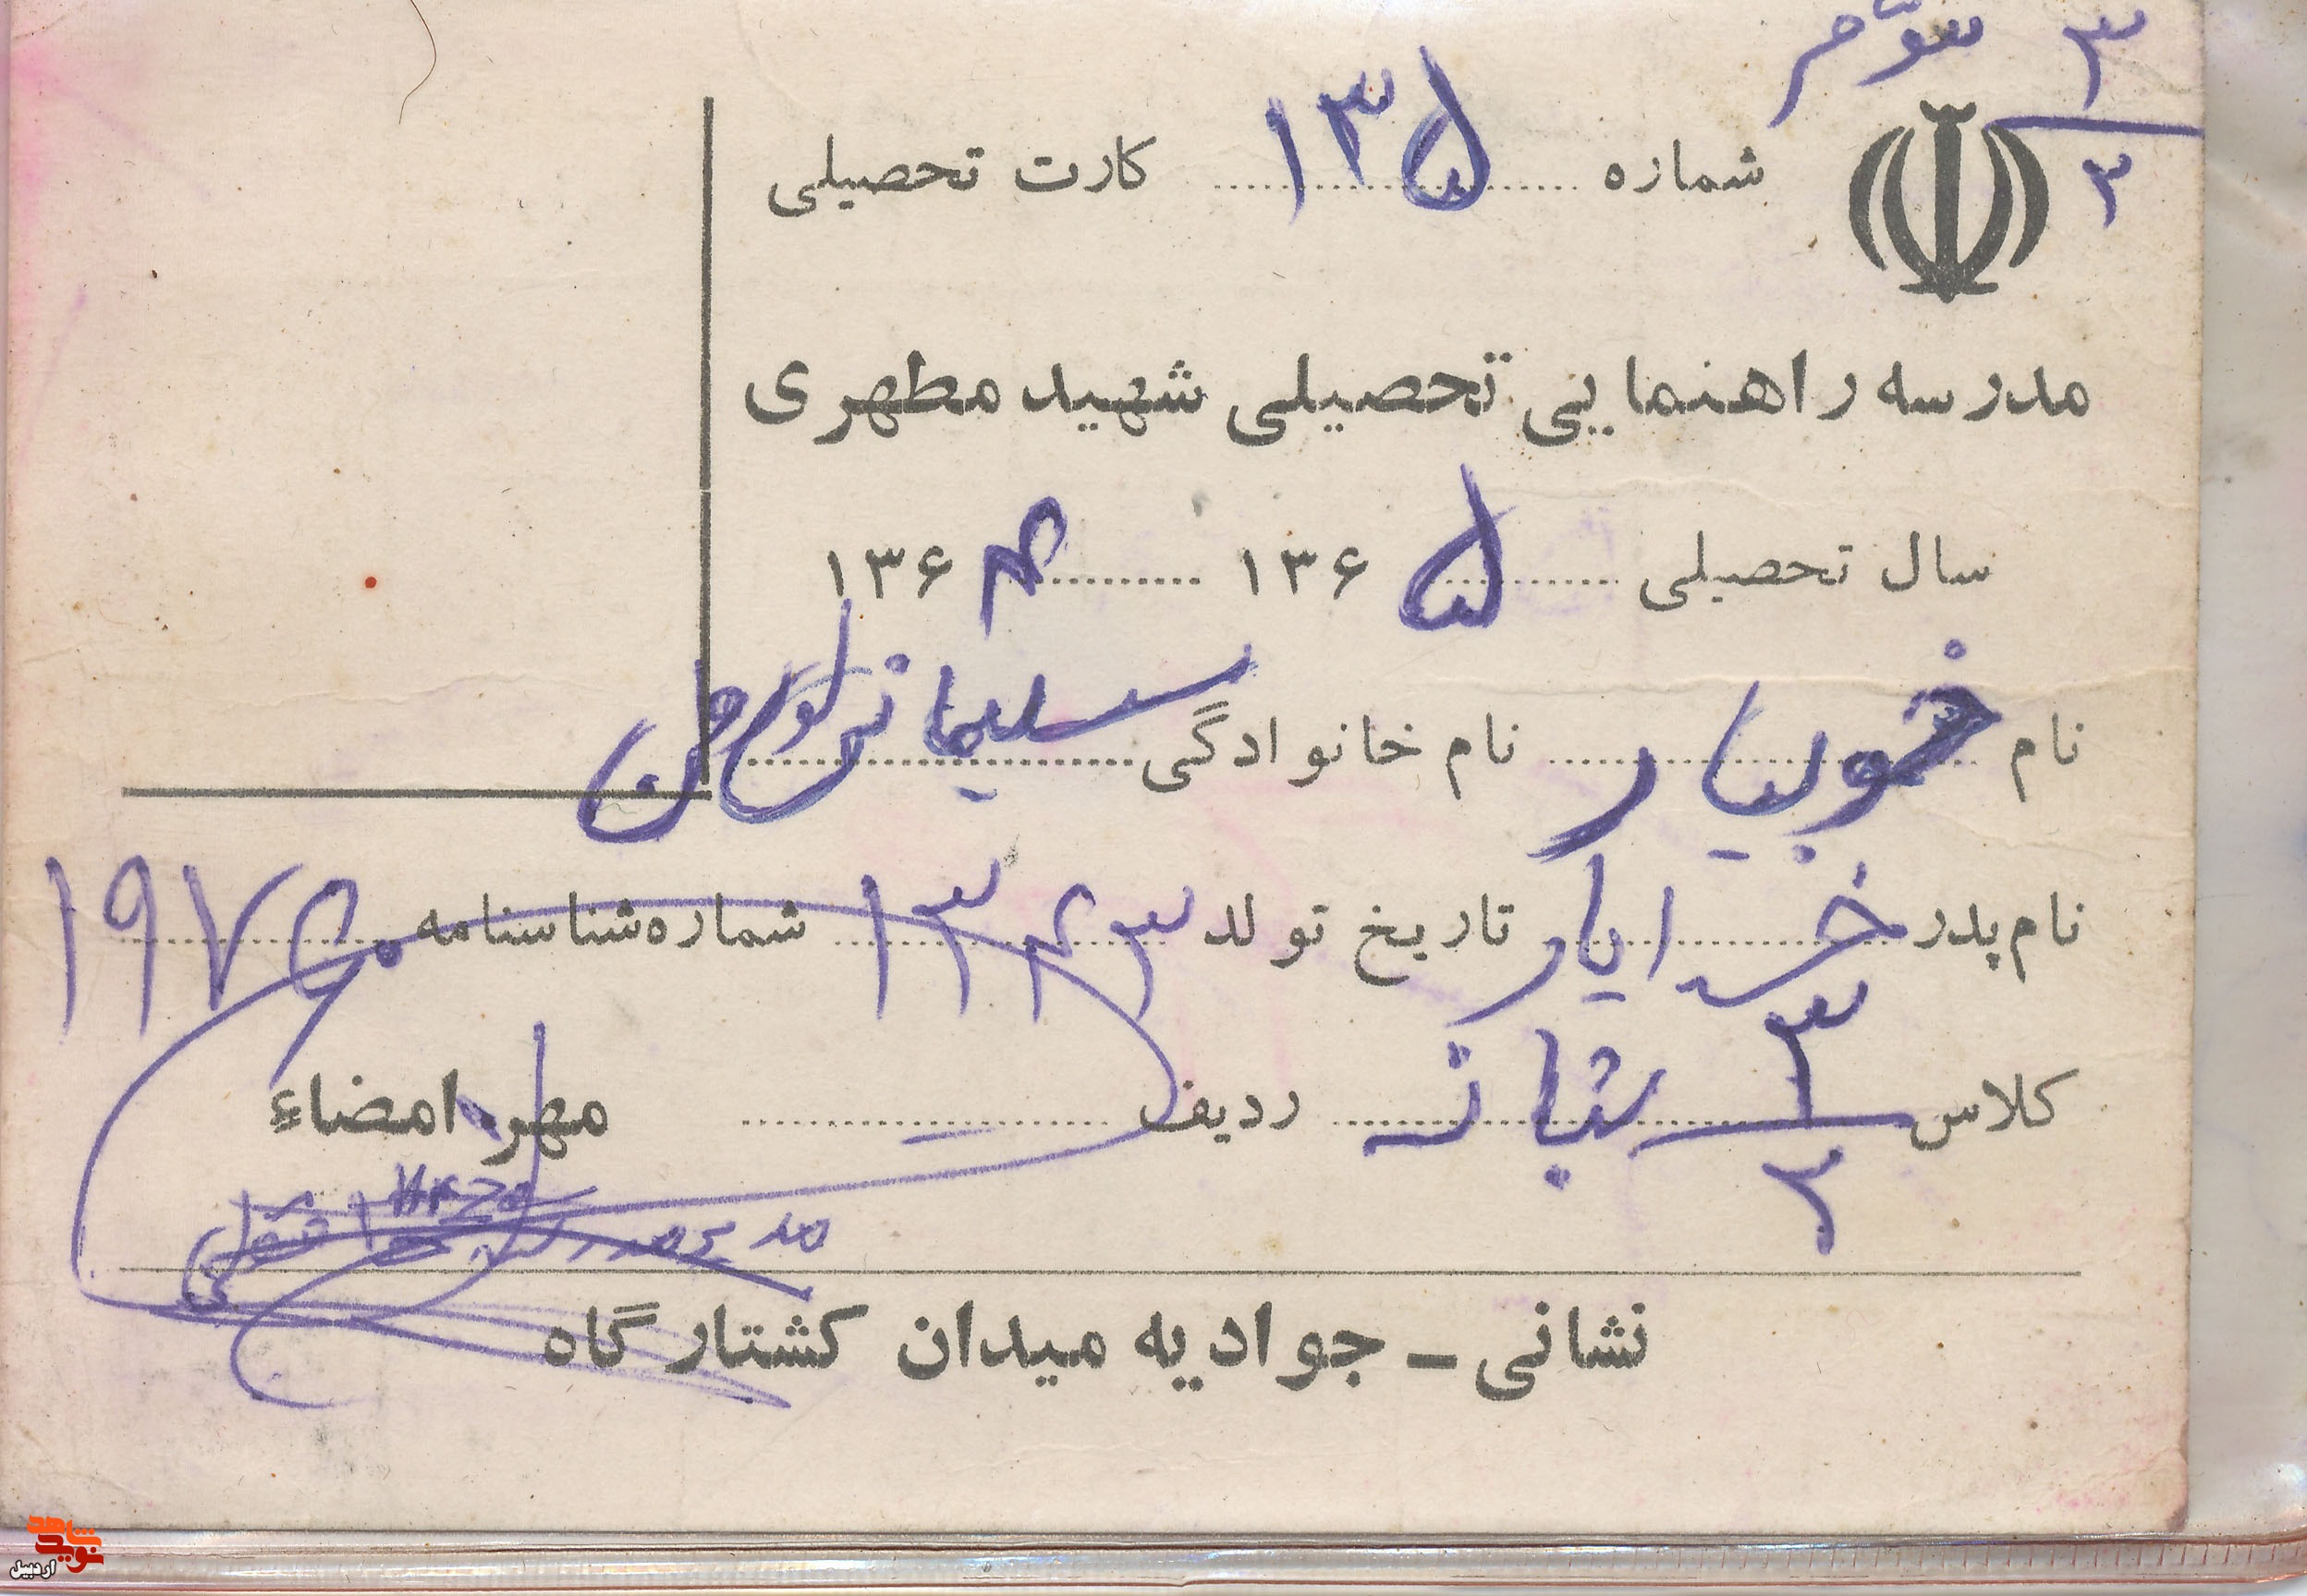 سوّم ۳/۳
شماره ۱۳۵ کارت تحصیلی
مدرسه راهنمایی تحصیلی شهید مطهری
سال تحصیلی ۱۳۶۵ ۱۳۶۴
نام خوبیار نام خانوادگی سلیمانی
نام پدر خدایار تاریخ تولد ۱۳۴۳ شماره شناسنامه ۱۹۷۶
کلاس ۳/۳ شبانه ردیف
مهر امضاء
نشانی - جوادیه میدان کشتارگاه
نوید شاهد
اردبیل